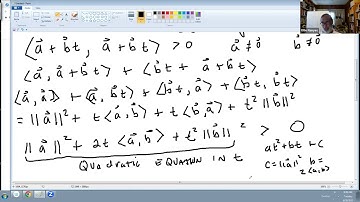 ⟨a⃗ + b⃗ t, a⃗ + b⃗ t⟩ > 0 a⃗ ≠ 0⃗ b⃗ ≠ 0⃗
⟨a⃗, a⃗ + b⃗ t⟩ + ⟨b⃗ t + a⃗ + b⃗ t⟩
⟨a⃗, a⃗⟩ + ⟨a⃗, b⃗ t⟩ + ⟨b⃗ t, a⃗⟩ + ⟨b⃗ t, b⃗ t⟩
= ||a⃗||² + t⟨a⃗, b⃗⟩ + t⟨b⃗, a⃗⟩ + t² ||b⃗||²
||a⃗||² + 2t ⟨a⃗, b⃗⟩ + t² ||b⃗||² > 0
QUADRATIC EQUATION IN t
at² + bt + c
c = ||a⃗||² b =
2⟨a, b⟩